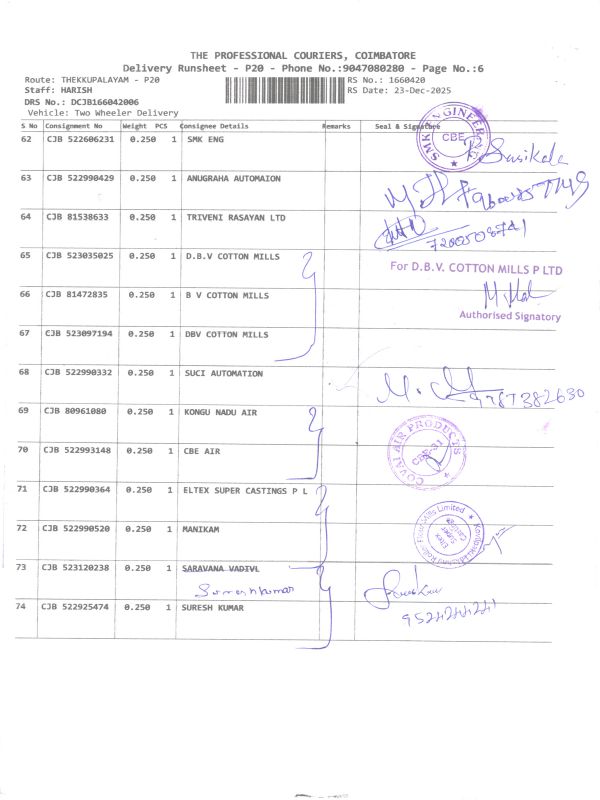 THE PROFESSIONAL COURIERS, COIMBATORE
Delivery Runsheet - P20 - Phone No.:9047080280 - Page No.:6
Route: THEKKUPALAYAM - P20 RS No.: 1660420
Staff: HARISH RS Date: 23-Dec-2025
DRS No.: DCJB166042006
Vehicle: Two Wheeler Delivery
S No Consignment No Weight PCS Consignee Details Remarks Seal & Signature
62 CJB 522606231 0.250 1 SMK ENG
SMK ENGINEERING CBE
63 CJB 522990429 0.250 1 ANUGRAHA AUTOMAION
64 CJB 81538633 0.250 1 TRIVENI RASAYAN LTD
65 CJB 523035025 0.250 1 D.B.V COTTON MILLS
For D.B.V. COTTON MILLS P LTD
66 CJB 81472835 0.250 1 B V COTTON MILLS
Authorised Signatory
67 CJB 523097194 0.250 1 DBV COTTON MILLS
68 CJB 522990332 0.250 1 SUCI AUTOMATION
9787382630
69 CJB 80961080 0.250 1 KONGU NADU AIR
COVAI AIR PRODUCTS CBE-31
70 CJB 522993148 0.250 1 CBE AIR
71 CJB 522990364 0.250 1 ELTEX SUPER CASTINGS P L
72 CJB 522990520 0.250 1 MANIKAM
Eltex Super Castings
73 CJB 523120238 0.250 1 SARAVANA VADIVL
Sureshkumar
74 CJB 522925474 0.250 1 SURESH KUMAR